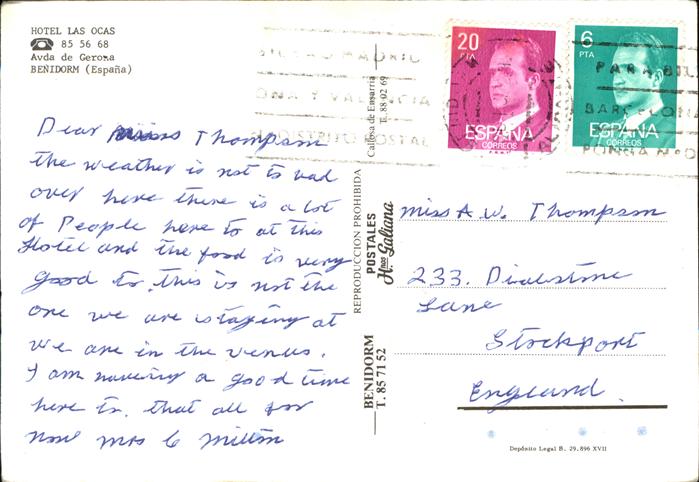 HOTEL LAS OCAS
☎ 85 56 68
Avda de Gerona
BENIDORM (España)
Dear miss Thompson
the weather is not to bad
over here there is a lot
of People here to at this
Hotel and the food is very
good to. this is not the
one we are istaying at
we are in the venus.
I am having a good time
here to. that all for
now mrs C Milton
Callosa de Ensarria
T. 88-02 69
REPRODUCCION PROHIBIDA
POSTALES
Hnos Galiana
BENIDORM
T. 85 71 52
20
PTA
ESPAÑA
CORREOS
6
PTA
ESPAÑA
CORREOS
MADRID
ONA Y VALENCIA
DISTRITO POSTAL
PARA BIL
BARCELONA
PONGA Nº D
miss A.W. Thompson
233. Dialstone
Lane
Stockport
England.
Depósito Legal B. 29.896 XVII